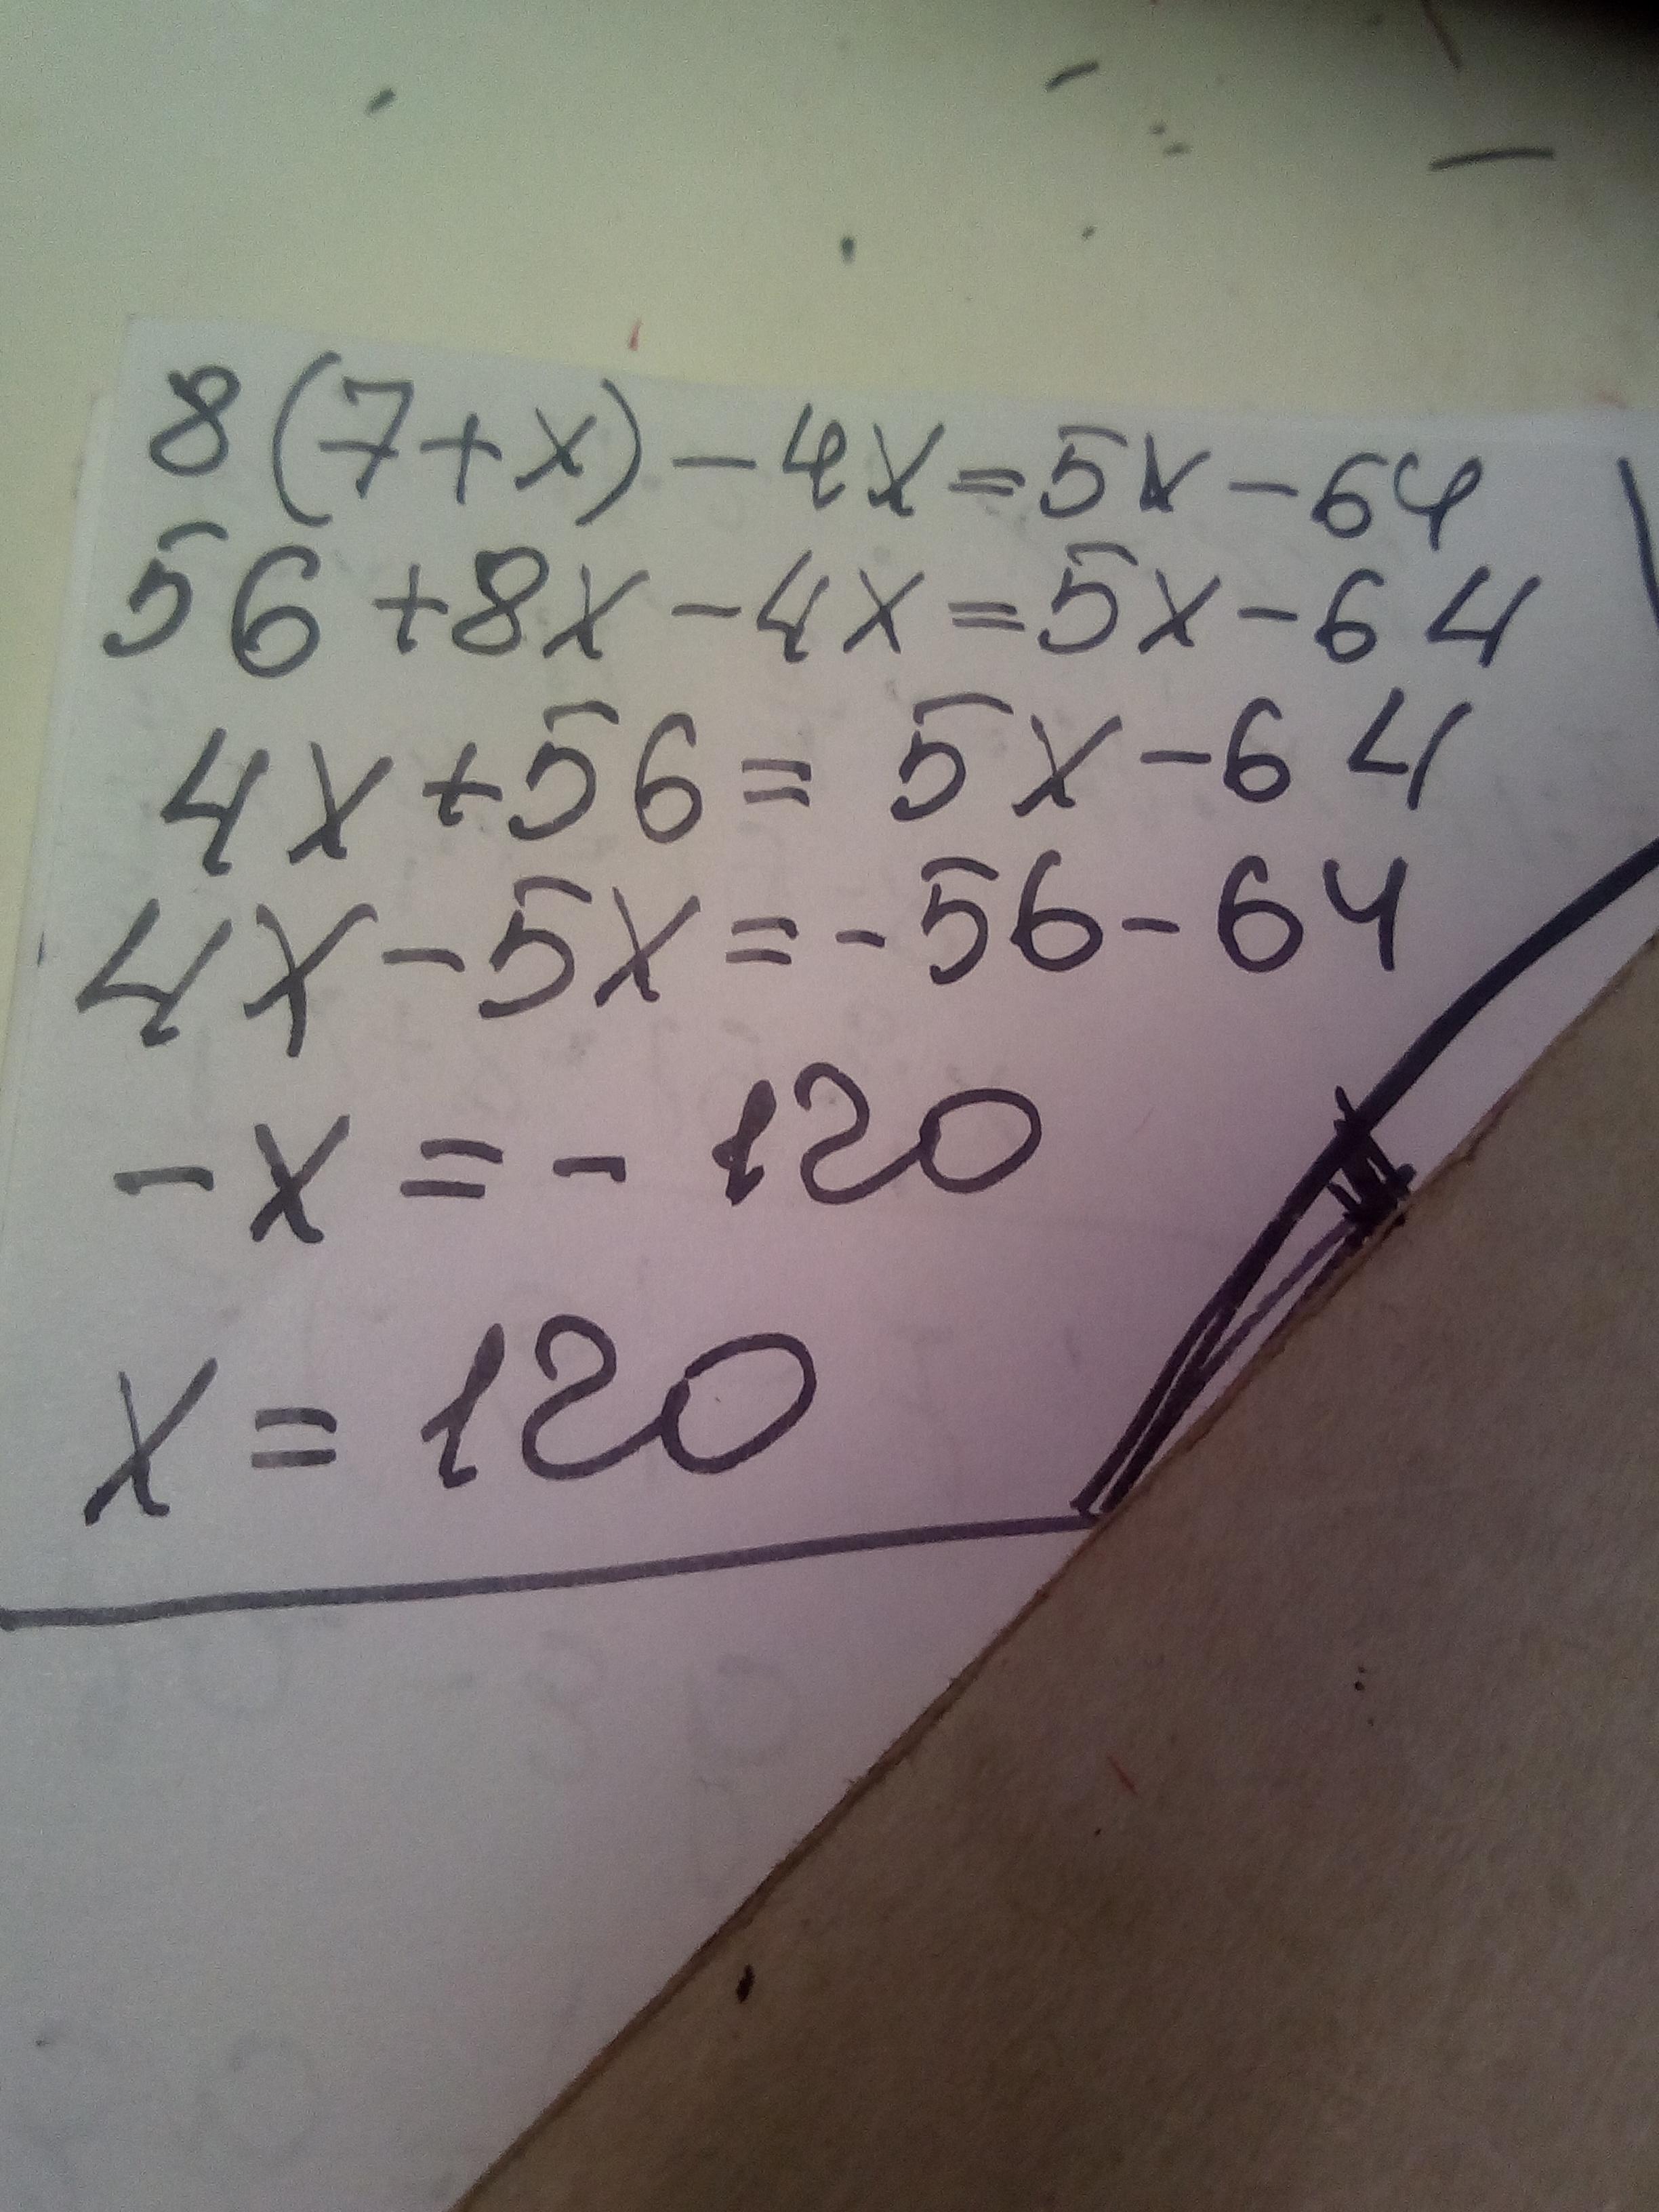 8(7+x)-4x=5x-64
56+8x-4x=5x-64
4x+56=5x-64
4x-5x=-56-64
-x=-120
x=120